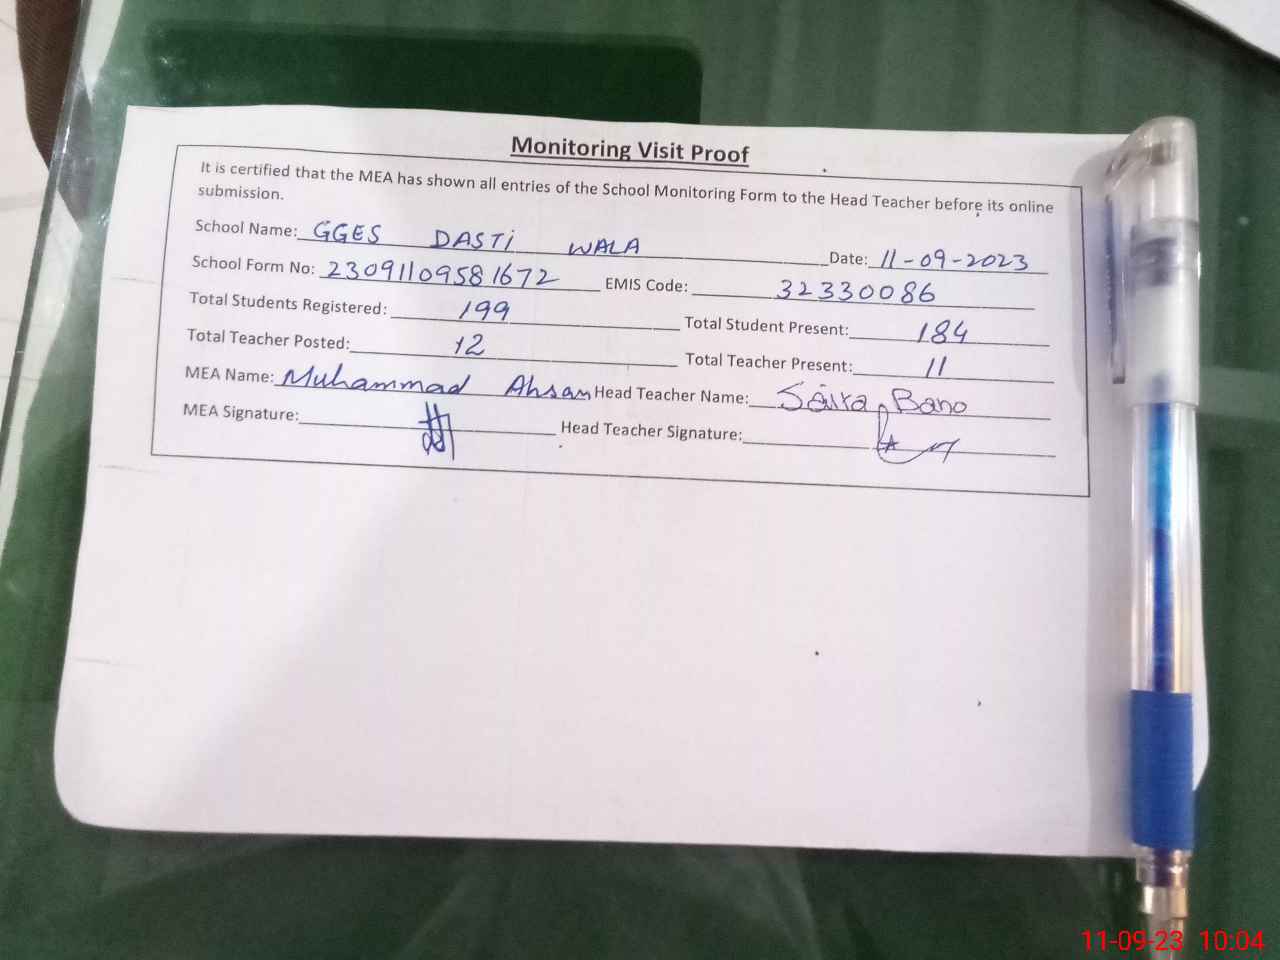 Monitoring Visit Proof
It is certified that the MEA has shown all entries of the School Monitoring Form to the Head Teacher before its online
submission.
School Name: GGES DASTI WALA Date: 11-09-2023
School Form No: 23091109581672 EMIS Code: 32330086
Total Students Registered: 199 Total Student Present: 184
Total Teacher Posted: 12 Total Teacher Present: 11
MEA Name: Muhammad Ahsan Head Teacher Name: Saira Bano
MEA Signature: Head Teacher Signature:
11-09-23 10:04